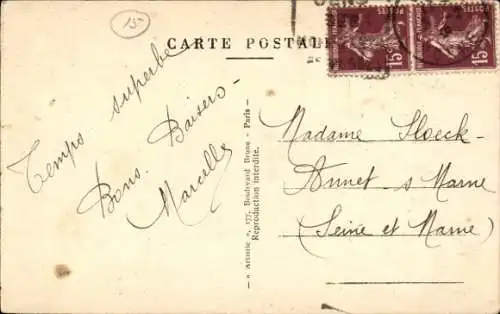 15-
CARTE POSTALE
15 POSTES 15
Temps superbe
Bons Baisers -
Marcelle
« Artistic », 177, Boulevard Brune - Paris -
Reproduction interdite.
Madame Sloeck-
Annet s Marne
(Seine et Marne)